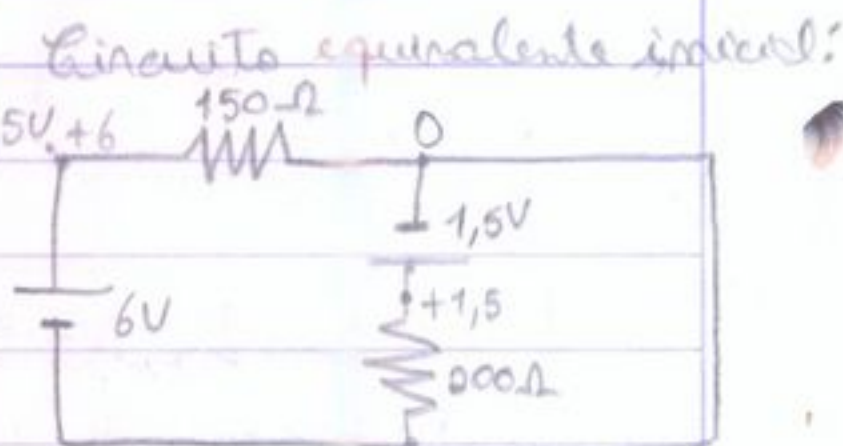 Circuito equivalente inicial:
150Ω
5V. +6
0
1,5V
6V
+1,5
200Ω